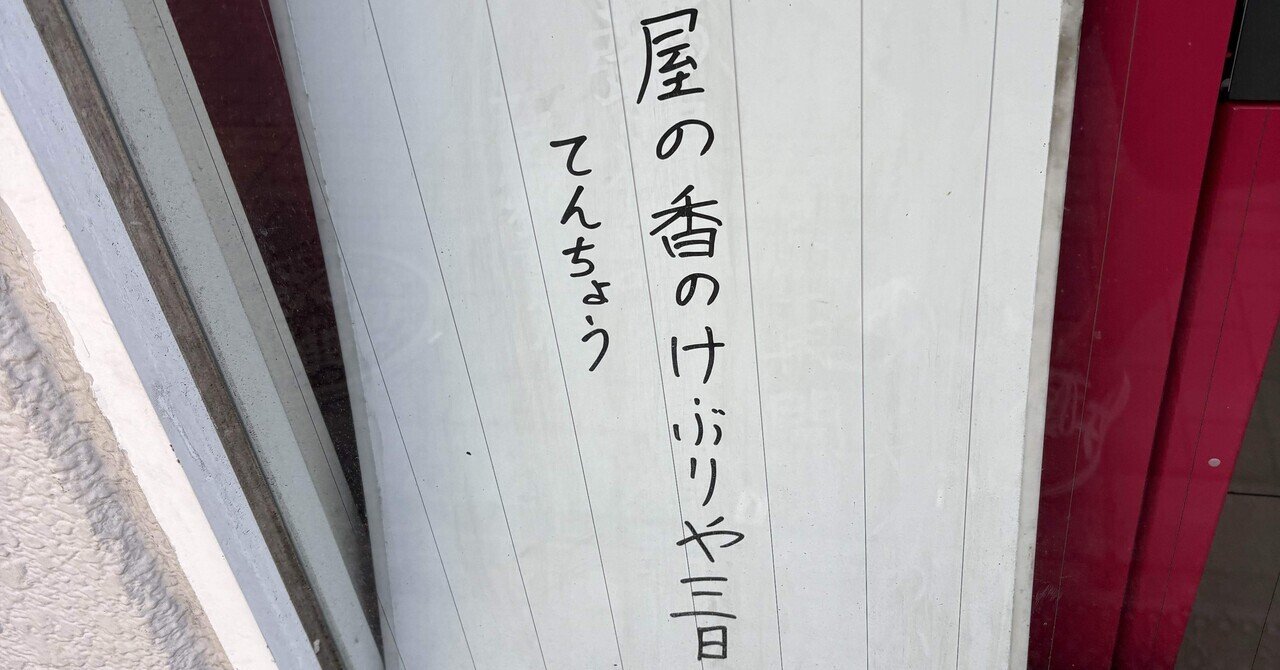 屋の香のけぶりや三日
てんちょう